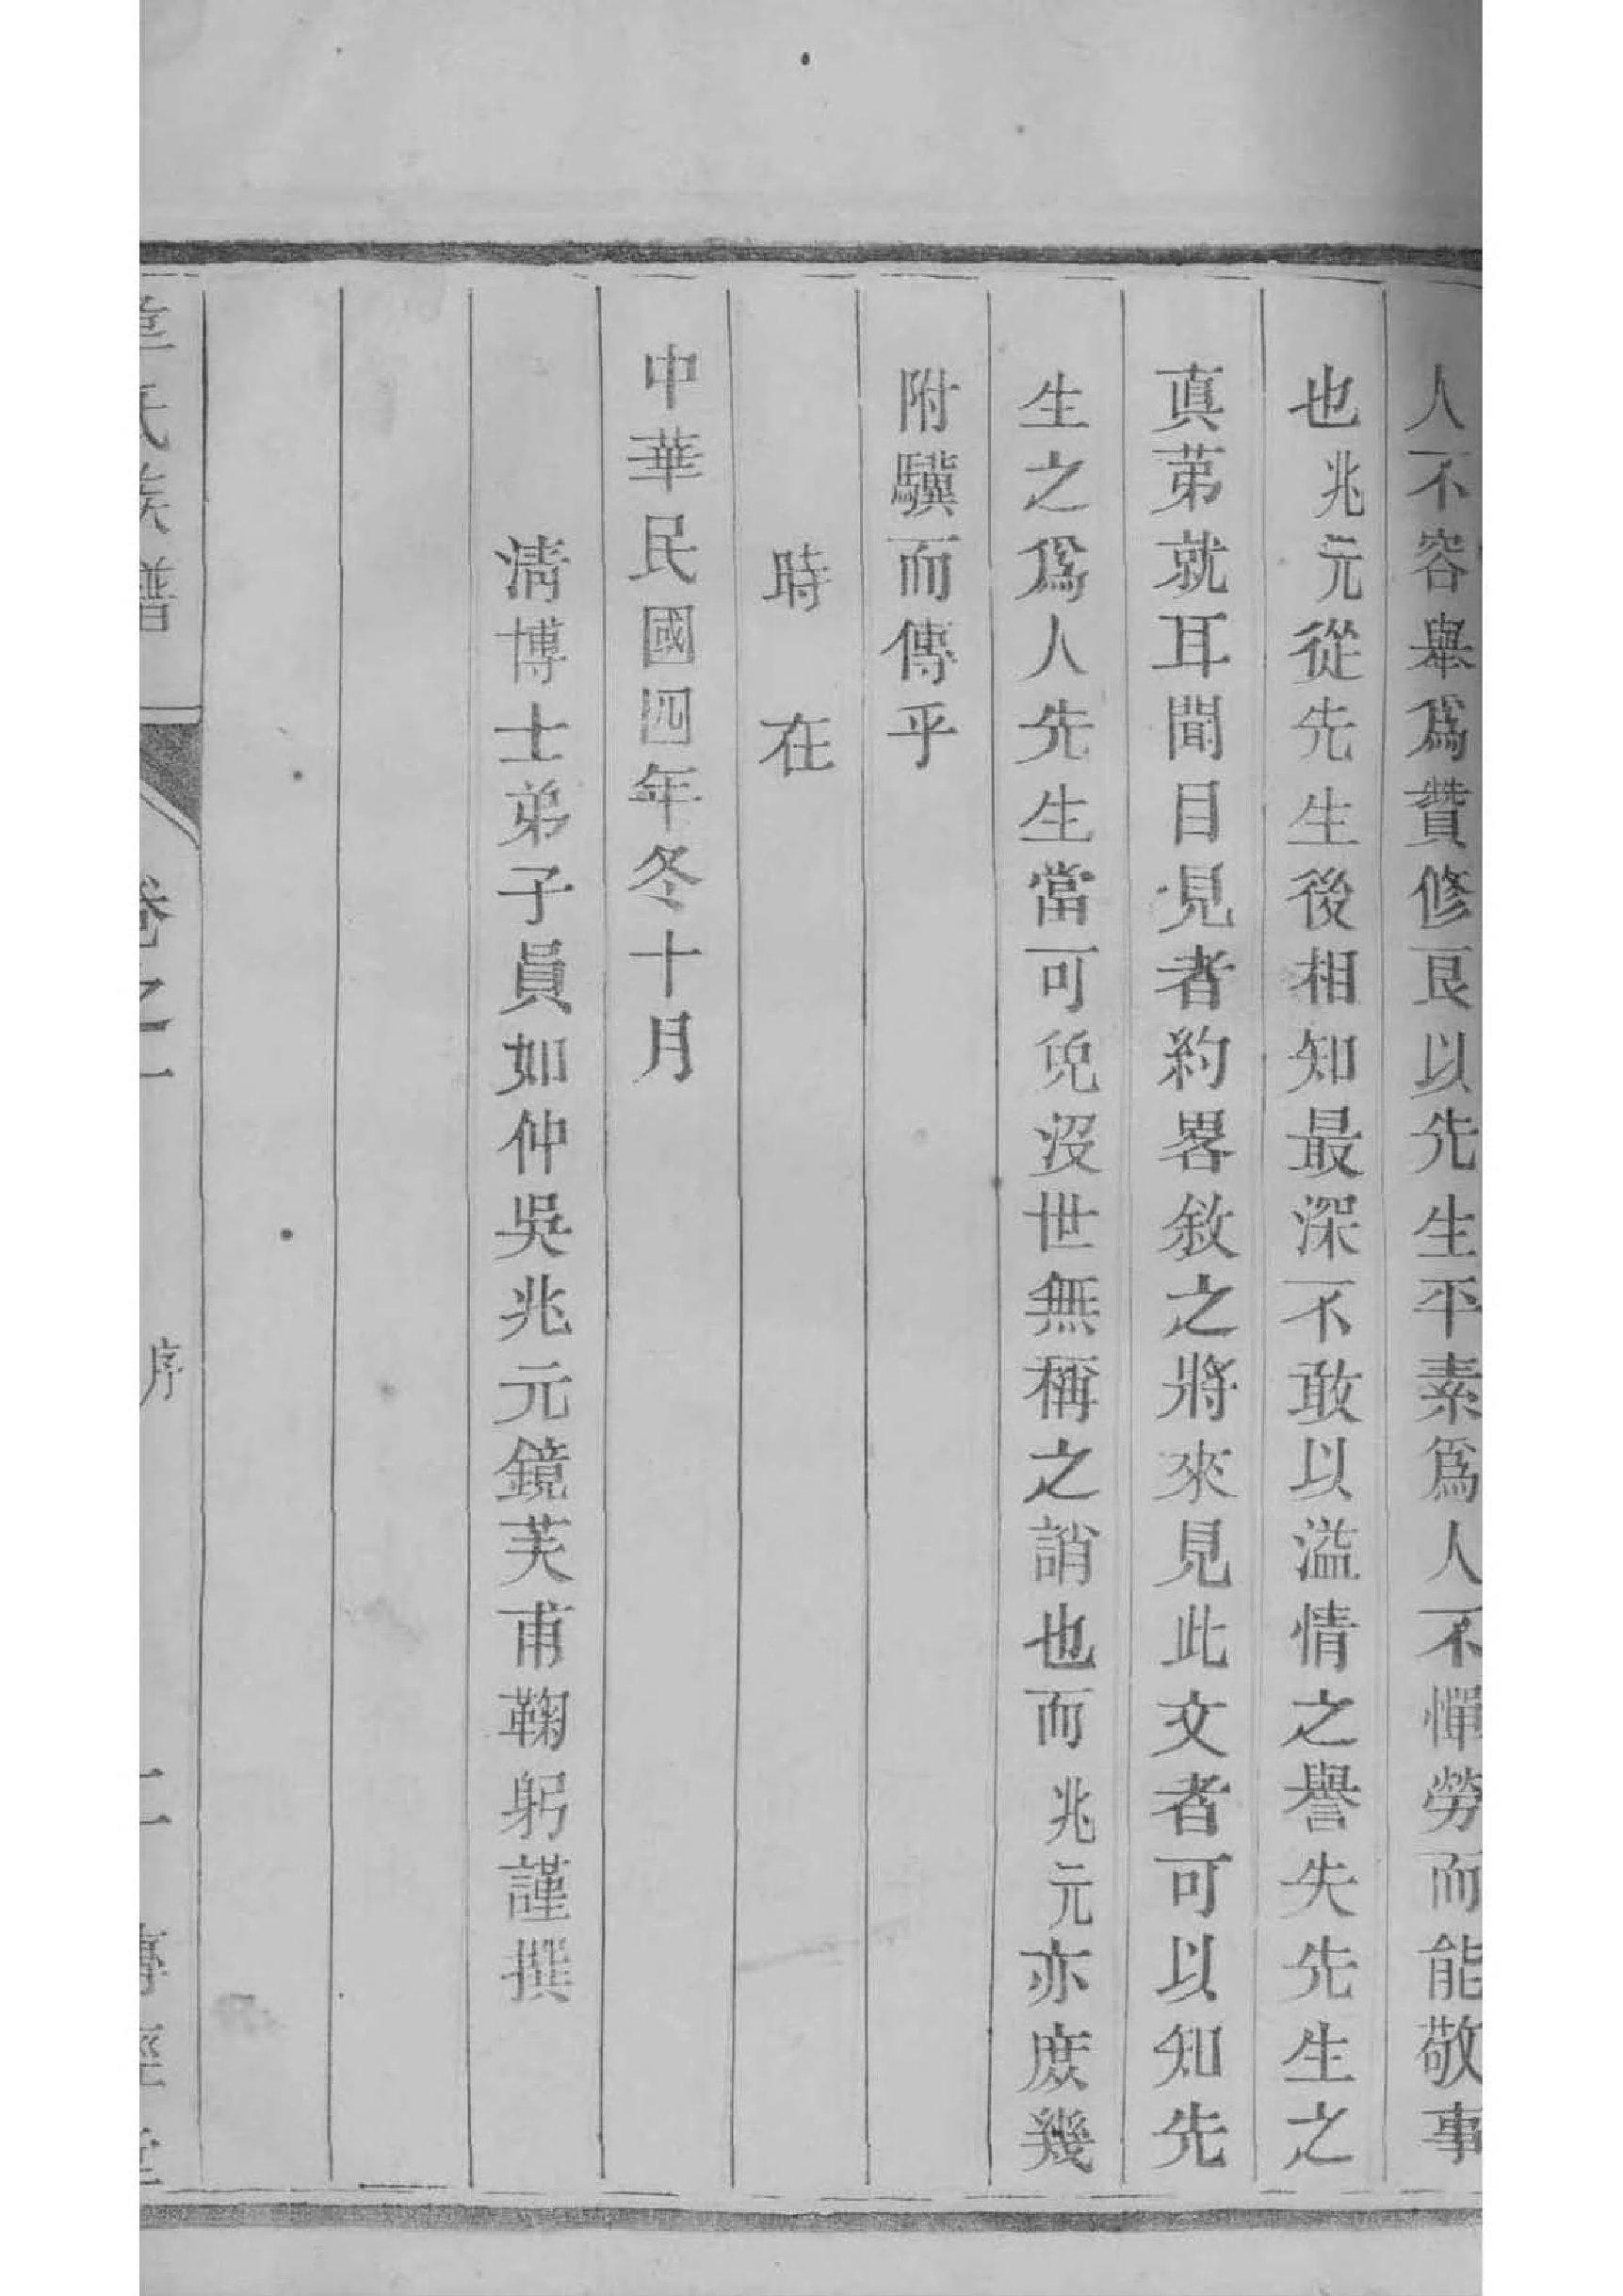 人不容舉爲贊修艮以先生平素爲人不憚勞而能敬事
也兆元從先生後相知最深不敢以溢情之譽失先生之
真苐就耳聞目見者約畧敘之將來見此文者可以知先
生之爲人先生當可免沒世無稱之誚也而兆元亦庶幾
附驥而傳乎
時在
中華民國四年冬十月
淸博士弟子員如仲吳兆元鏡芙甫鞠躬謹撰
氏族譜
卷之一
序
二